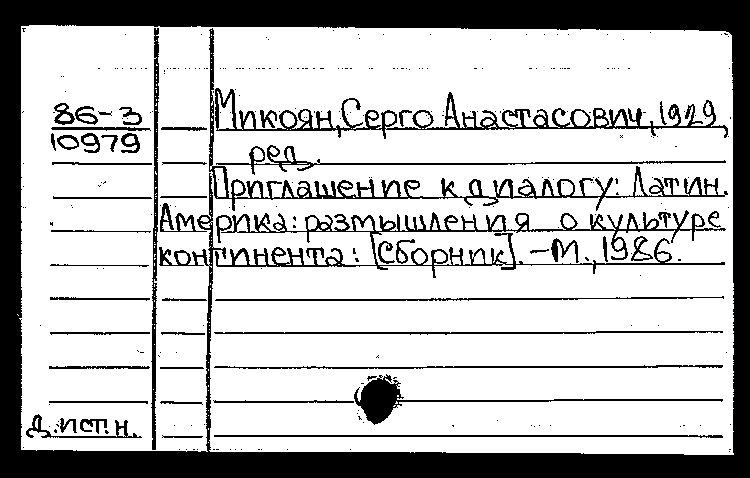 86-3
10979
Микоян, Серго Анастасович, 1929,
ред.
Приглашение к диалогу: Латин.
Америка: размышления о культуре
континента: [Сборник]. – М., 1986.
д.ист.н.